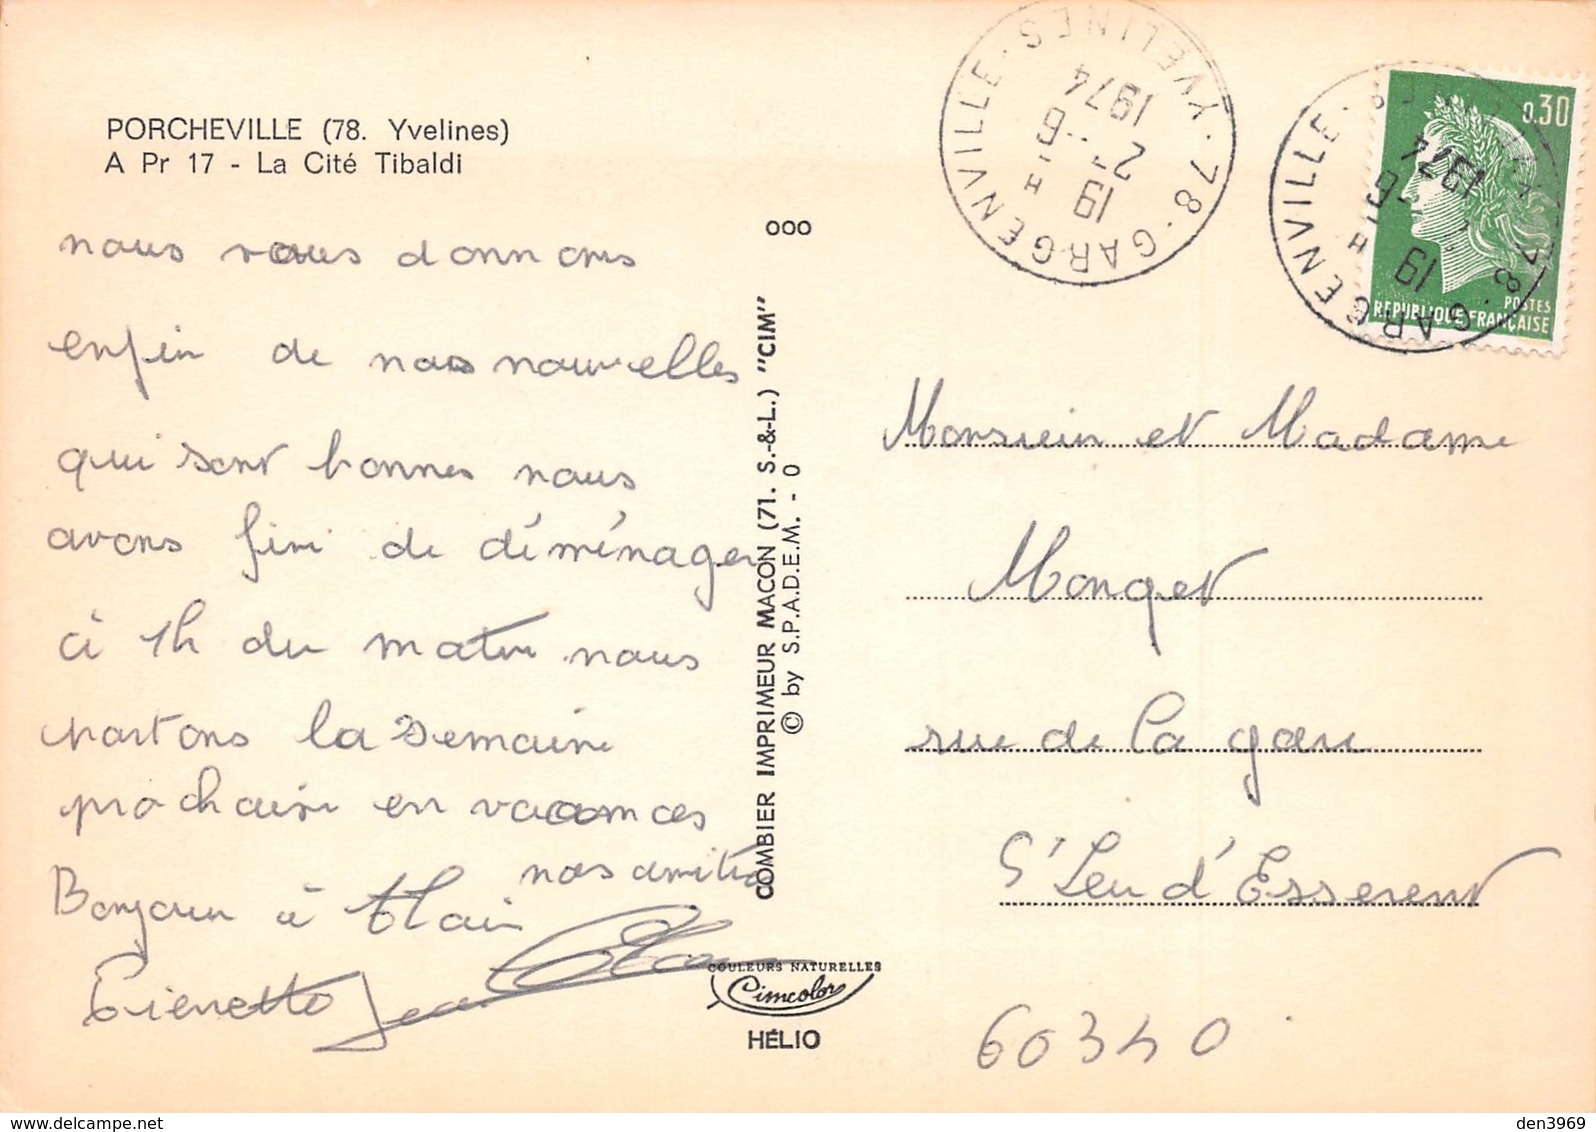 PORCHEVILLE (78. Yvelines)
A Pr 17 - La Cité Tibaldi
nous vous donnons
enfin de nos nouvelles
qui sont bonnes nous
avons fini de déménager
à 1h du matin nous
partons la semaine
prochaine en vacances
nos amitiés
Bonjour à Alain
Pierrette Jean
COULEURS NATURELLES
Cimcolor
HÉLIO
000
COMBIER IMPRIMEUR MACON (71. S.-&-L.) "CIM"
© by S.P.A.D.E.M. - 0
78 · GARGENVILLE · YVELINES ·
19 H
2 - 6
1974
78 · GARGENVILLE ·
19 H
6
1974
0.30
POSTES
REPUBLIQUE FRANÇAISE
Monsieur et Madame
Monget
rue de la gare
St Leu d'Esserent
60340
den3969